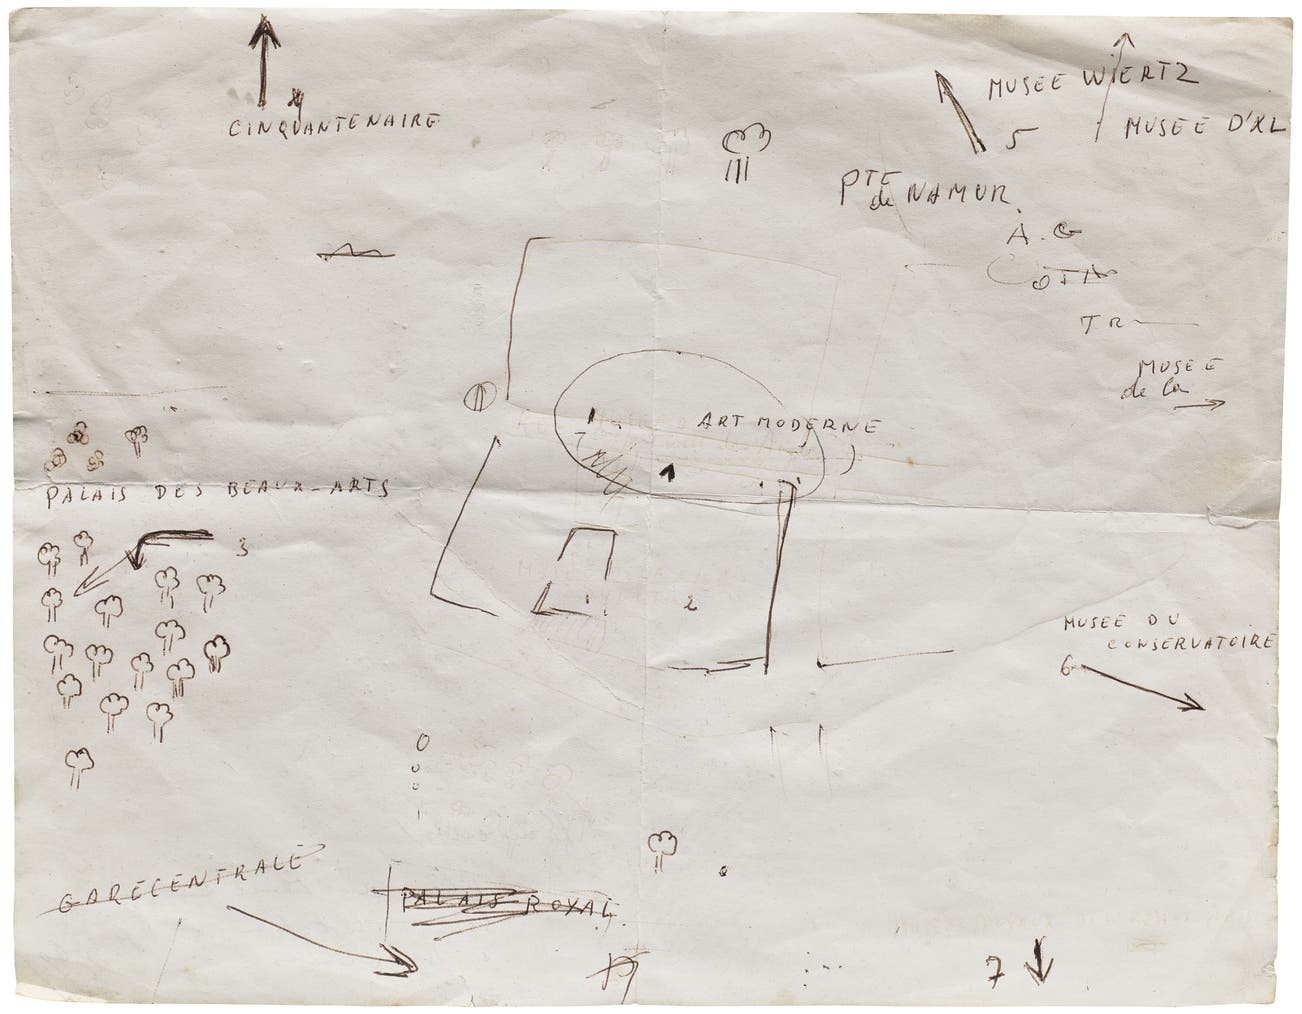 4
CINQUANTENAIRE
MUSEE WIERTZ
5
MUSEE D'XL
PTE
de NAMUR
A. G
TR
MUSEE
de la
ART MODERNE
1
PALAIS DES BEAUX-ARTS
3
2
MUSEE DU
CONSERVATOIRE
6
GARE CENTRALE
PALAIS ROYAL
7